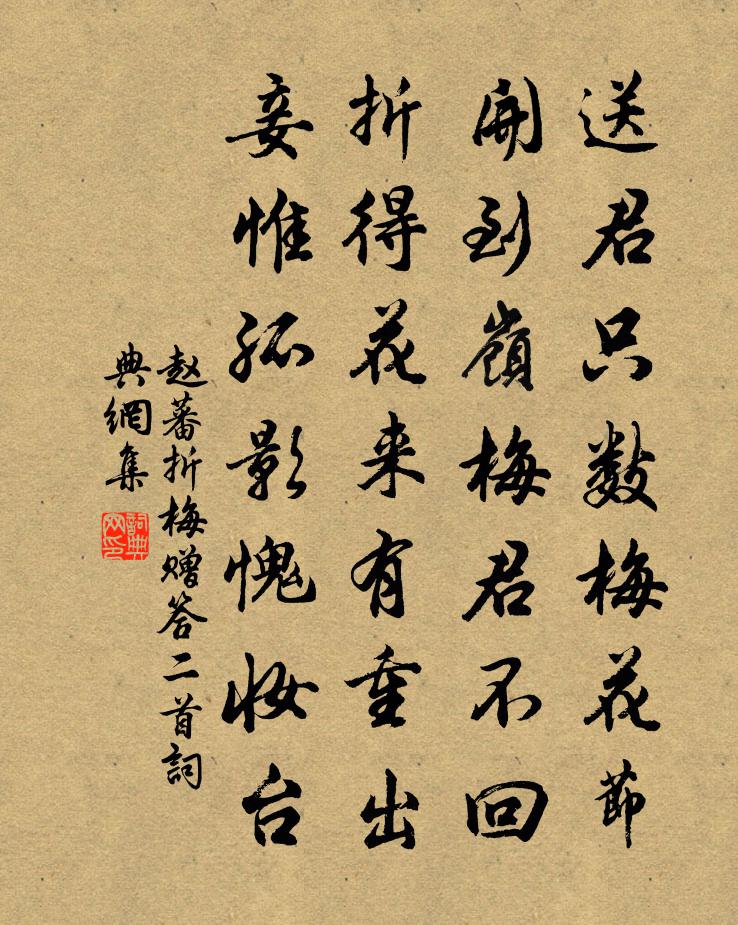 送君只数梅花節
開到嶺梅君不回
折得花来有重出
妾惟孤影愧妆台
赵蕃折梅赠答二首詞
典網集
詞典网印